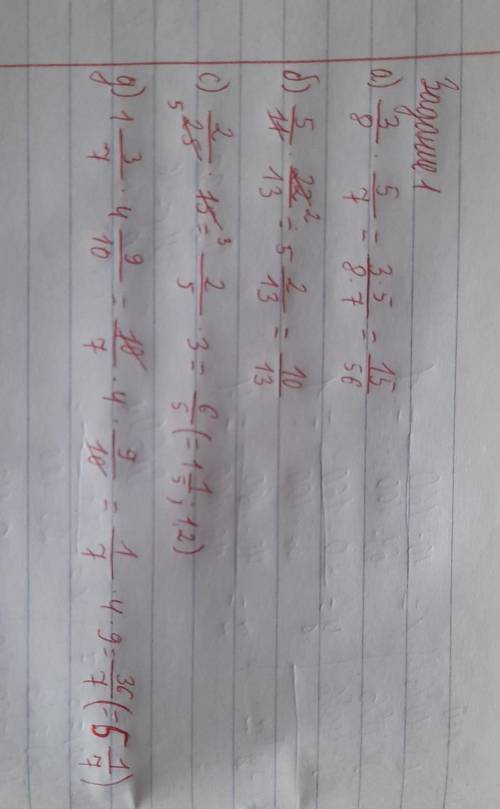 Задание 1
а) 3/8 · 5/7 = 3·5/8·7 = 15/56
б) 5/11 · 22²/13 = 5 2/13 = 10/13
с) 2/25 5 · 15³ = 2/5 · 3 = 6/5 (= 1 1/5; 1,2)
д) 1 3/7 · 4 · 9/10 = 10/7 · 4 · 9/10 = 1/7 · 4 · 9 = 36/7 (= 5 1/7)